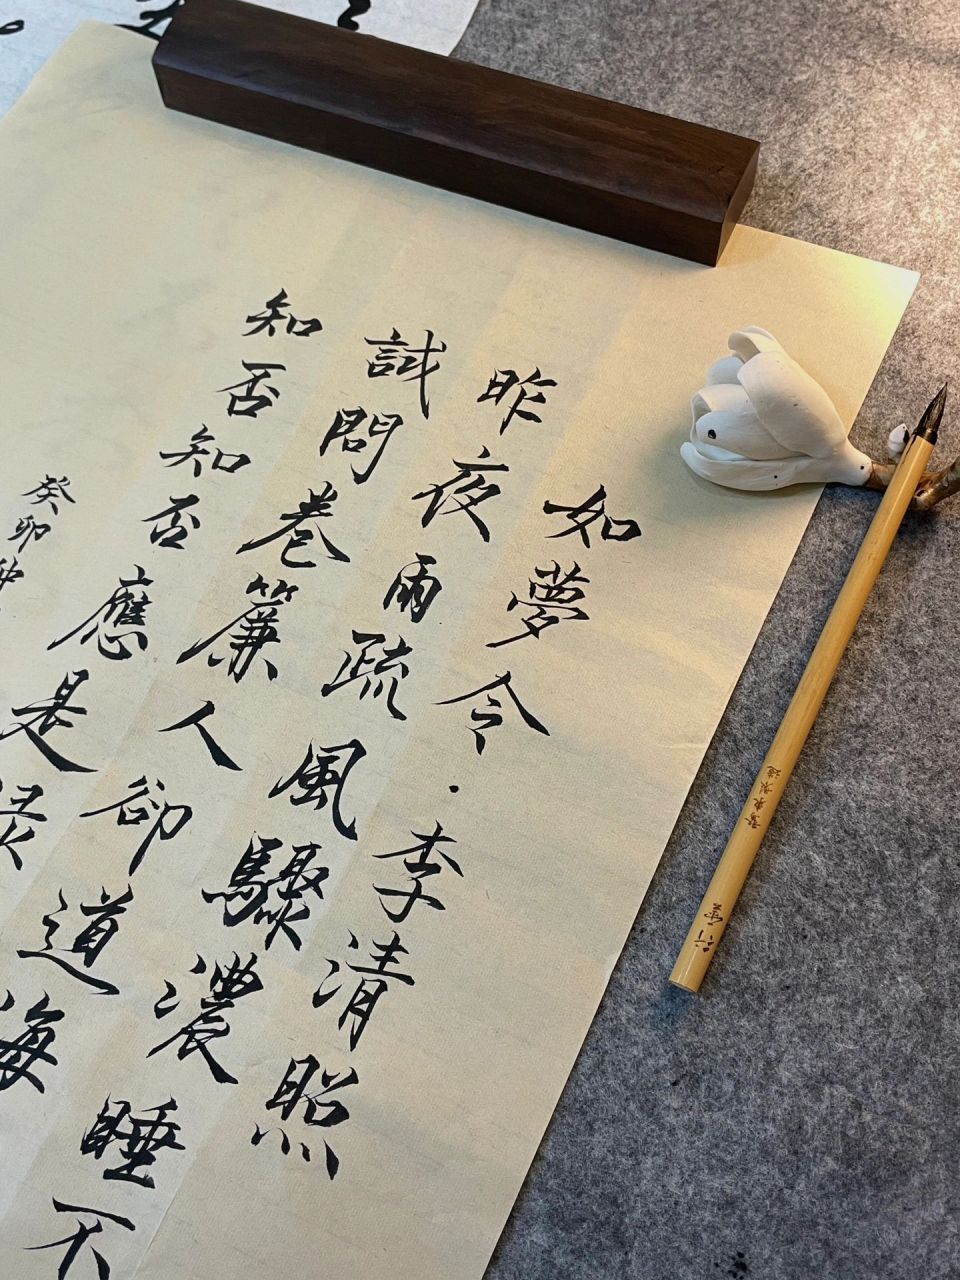 如夢令·李清照
昨夜雨疏風驟濃睡不
試問卷簾人卻道海
知否知否應是
癸卯仲
行雲